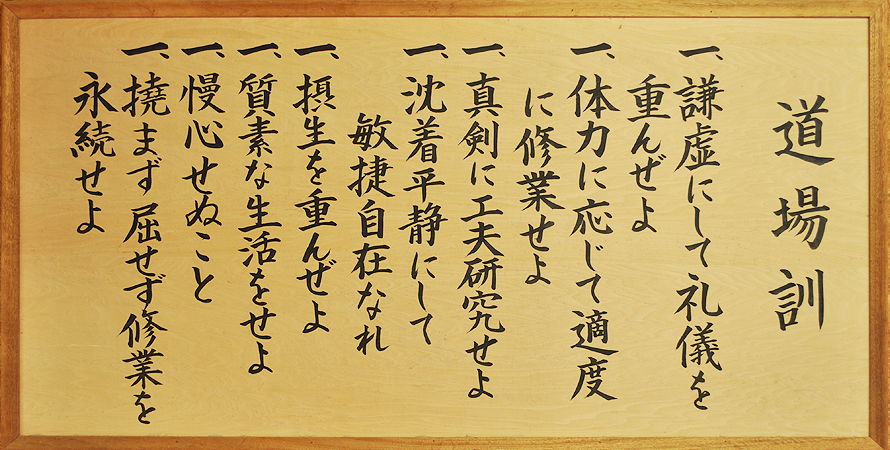 道場訓
一、謙虚にして礼儀を
重んぜよ
一、体力に応じて適度
に修業せよ
一、真剣に工夫研究せよ
一、沈着平静にして
敏捷自在なれ
一、摂生を重んぜよ
一、質素な生活をせよ
一、慢心せぬこと
一、撓まず屈せず修業を
永続せよ